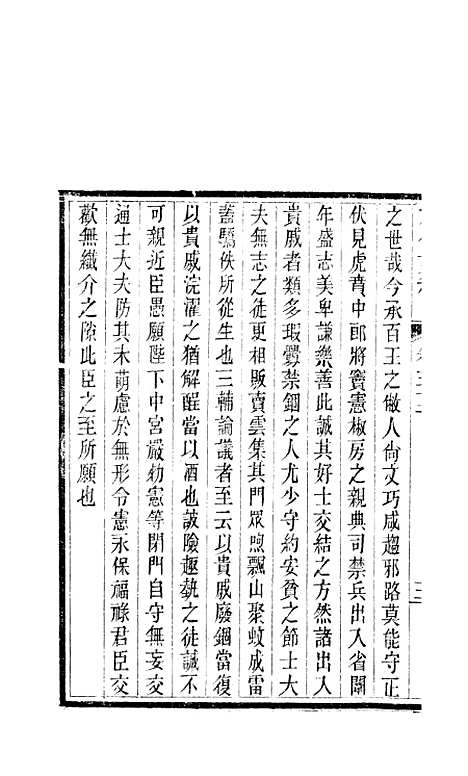 之世哉今承百王之敝人尚文巧咸趨邪路莫能守正
伏見虎賁中郎將竇憲椒房之親典司禁兵出入省闥
年盛志美卑謙樂善此誠其好士交結之方然諸出入
貴戚者類多瑕釁禁錮之人尤少守約安貧之節士大
夫無志之徒更相販賣雲集其門眾煦飄山聚蚊成雷
蓋驕佚所從生也三輔論議者至云以貴戚廢錮當復
以貴戚浣濯之猶解酲當以酒也詖險趣埶之徒誠不
可親近臣愚願陛下中宮嚴勑憲等閉門自守無妄交
通士大夫防其未萌慮於無形令憲永保福祿君臣交
歡無纖介之隙此臣之至所願也